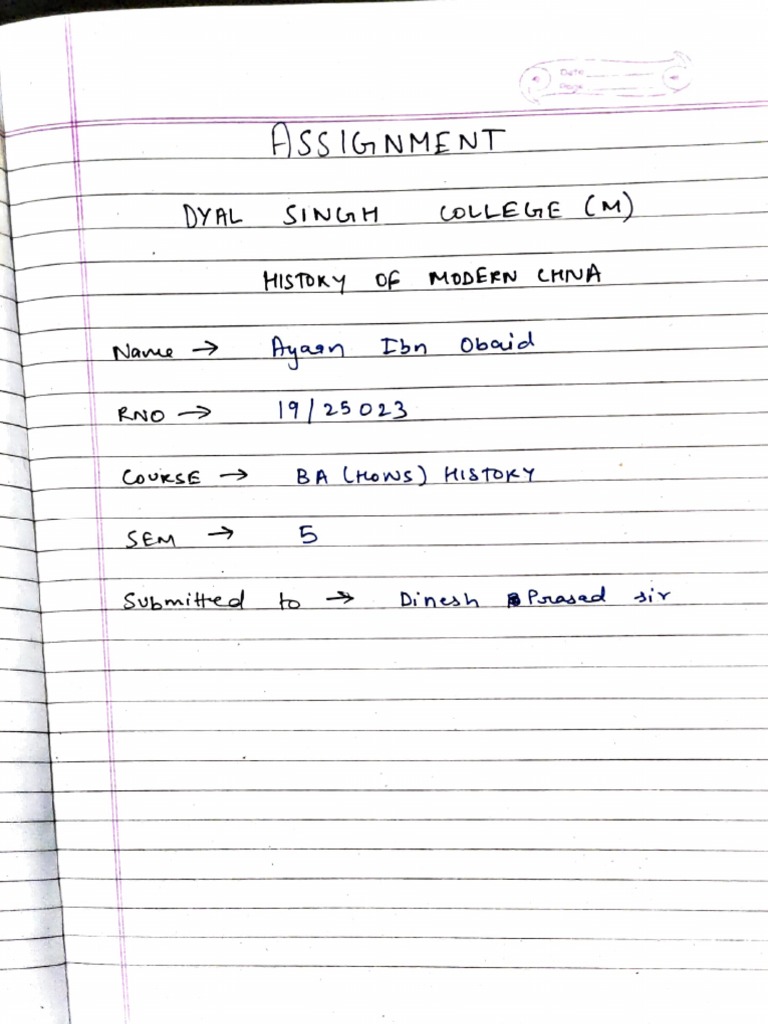 Date
Page
ASSIGNMENT
DYAL SINGH COLLEGE (M)
HISTORY OF MODERN CHNA
Name → Ayaan Ibn Obaid
RNO → 19/25023
COURSE → BA (HONS) HISTORY
SEM → 5
Submitted to → Dinesh Prasad sir